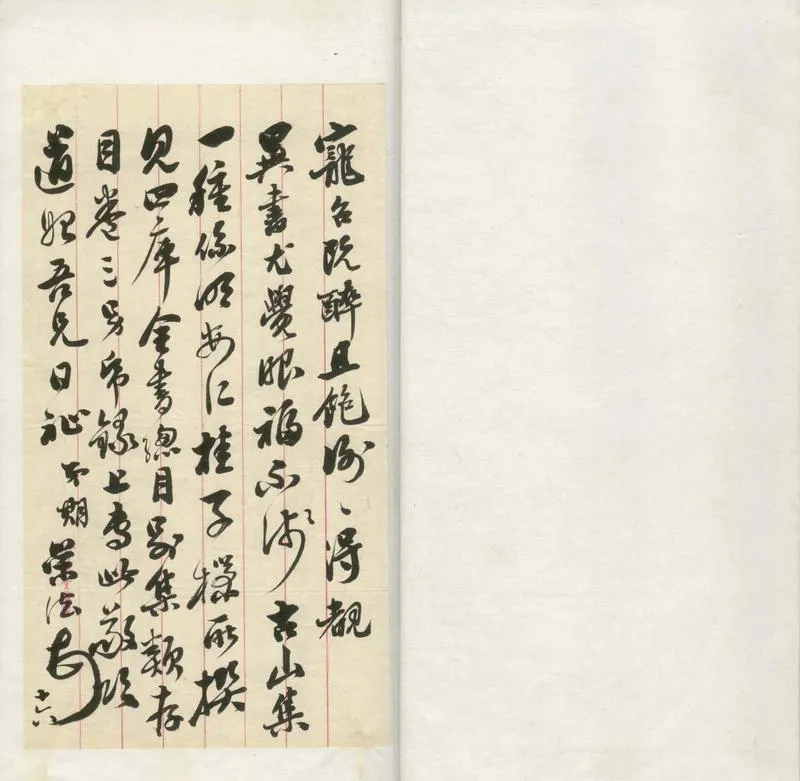 寵召既醉且飽謝〻得覩
異書尤覺眼福不淺古山集
一種係明安仁桂子樸所撰
見四庫全書總目別集類存
目卷三另帋錄上專此敬頌
道始吾兄日祉 弟期榮法頓 十六